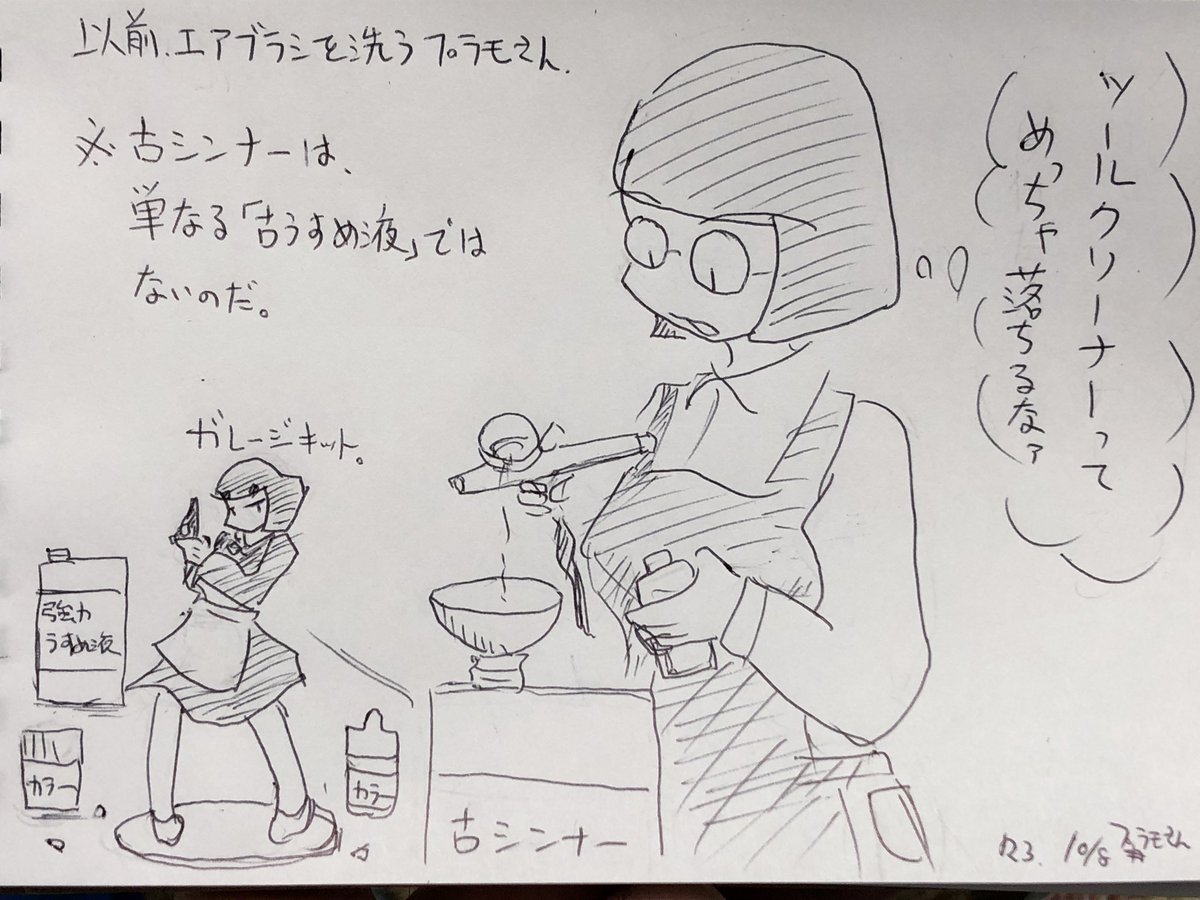 以前、エアブラシを洗うプラモさん。
※古シンナーは、
単なる「古うすめ液」では
ないのだ。
ツールクリーナーって
めっちゃ落ちるなァ
ガレージキット。
強力
うすめ液
カラー
カラー
古シンナー
'23. 10/8 プラモさん